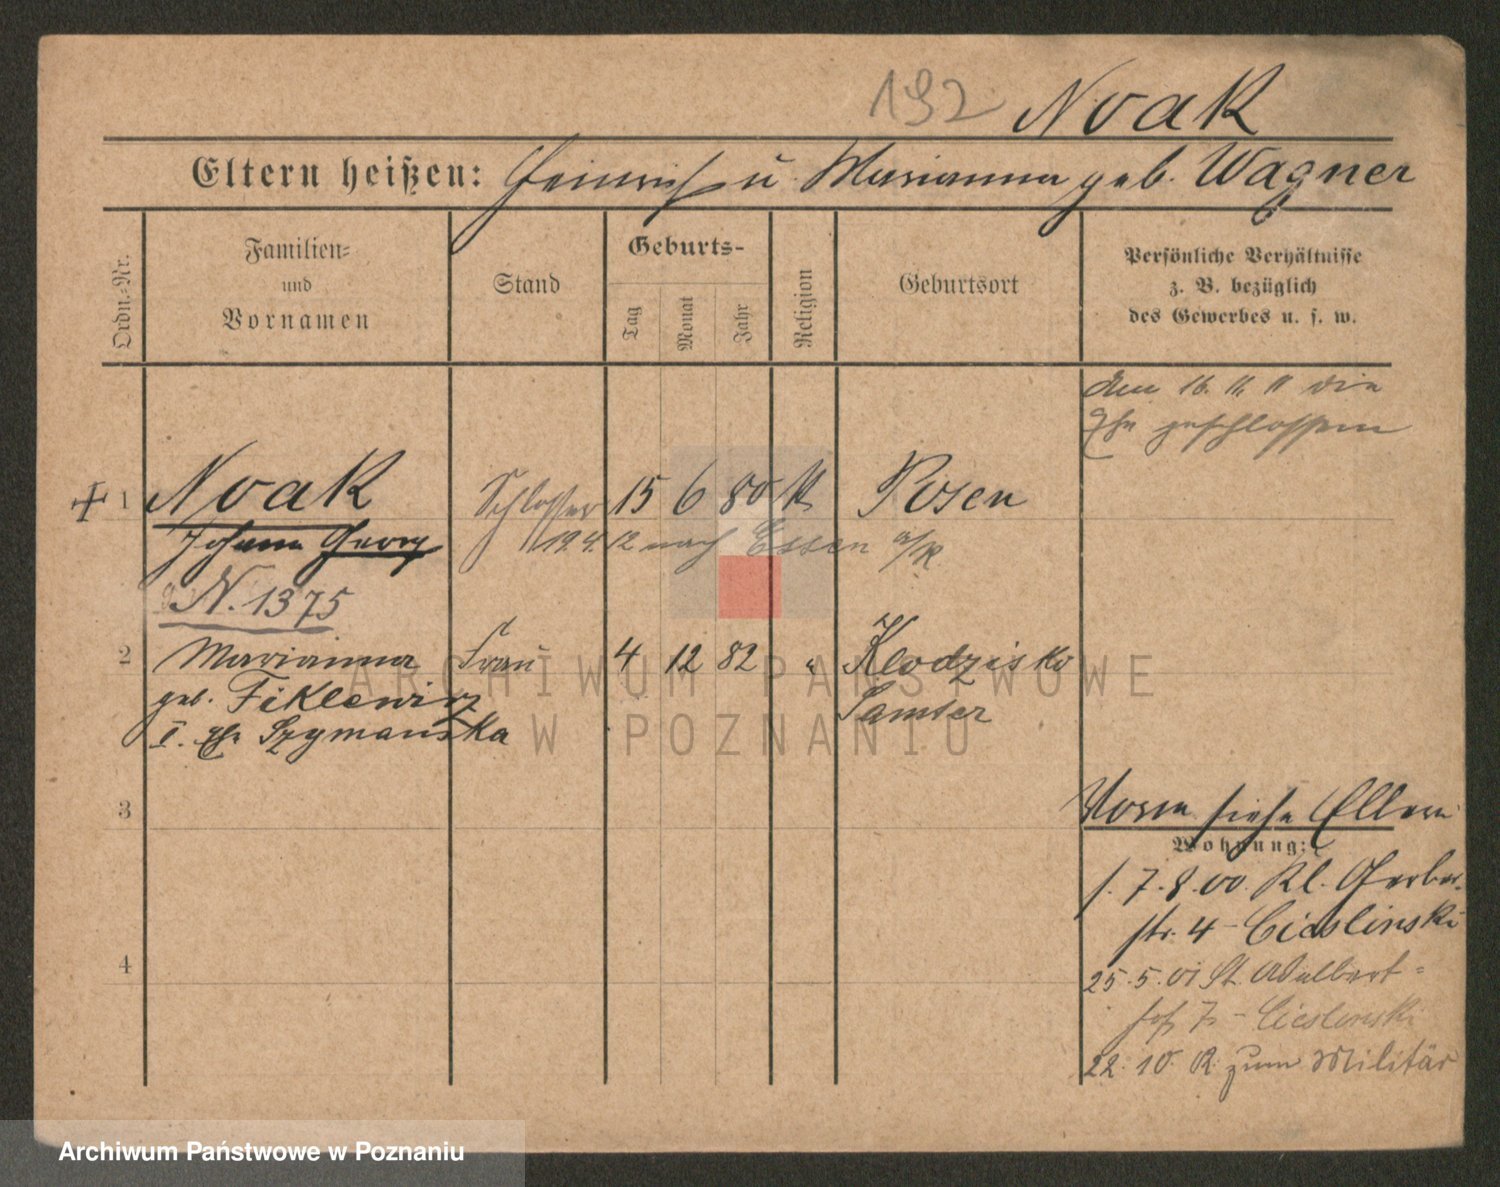 192 Noak
Eltern heißen: Heinrich u. Marianna geb. Wagner
Ordn.-Nr.
Familien-
und
Vornamen
Stand
Geburts-
Tag
Monat
Jahr
Religion
Geburtsort
Persönliche Verhältnisse
z. B. bezüglich
des Gewerbes u. s. w.
den 16. 11. 11 die
Ehe geschlossen
1 Noak Schlosser 15 6 80 K Posen
Johann Georg 19.4.12 nach Essen a/R.
N. 1375
2 Marianna Frau 4 12 82 " Klodzisko
geb. Fiklewicz Samter
I. Ehe Szymanska
3
Vorm siehe Eltern
Wohnung:
f. 7.8.00. Kl. Gerber-
str. 4 - Cieslinski
4
25.5.01 St. Adalbert-
hof 7 - Cieslinski
22.10. R. zum Militär
ARCHIWUM PAŃSTWOWE
W POZNANIU
Archiwum Państwowe w Poznaniu